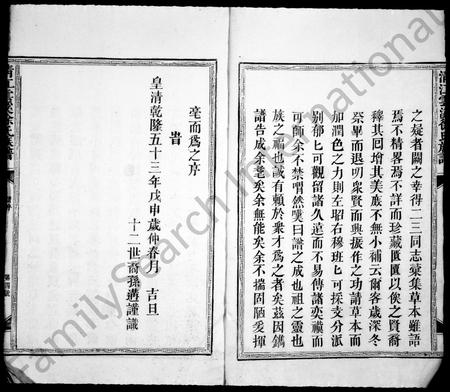 之疑者闕之幸得二三同志彙集草本雖語
焉不精畧焉不詳而珍藏匱匱以俟之賢裔
釋其囘增其美底不無小補云爾客歲深冬
榮畢而退明衆賢而興振作之功請草本而
加潤色之力則左昭右穆班匕可採支分派
别郁匕可觀畱諸久遠而不易傳諸奕禩而
可師余不禁喟然嘆曰譜之成也祖之靈也
族之福也誠有賴於衆才爲之者矣兹因鐫
譜告成余老矣余無能矣余不揣固陋爰揮
毫而爲之序
旹
皇清乾隆五十三年戊申歲仲春月 吉旦
十二世裔孫遴謹識
FamilySearch International